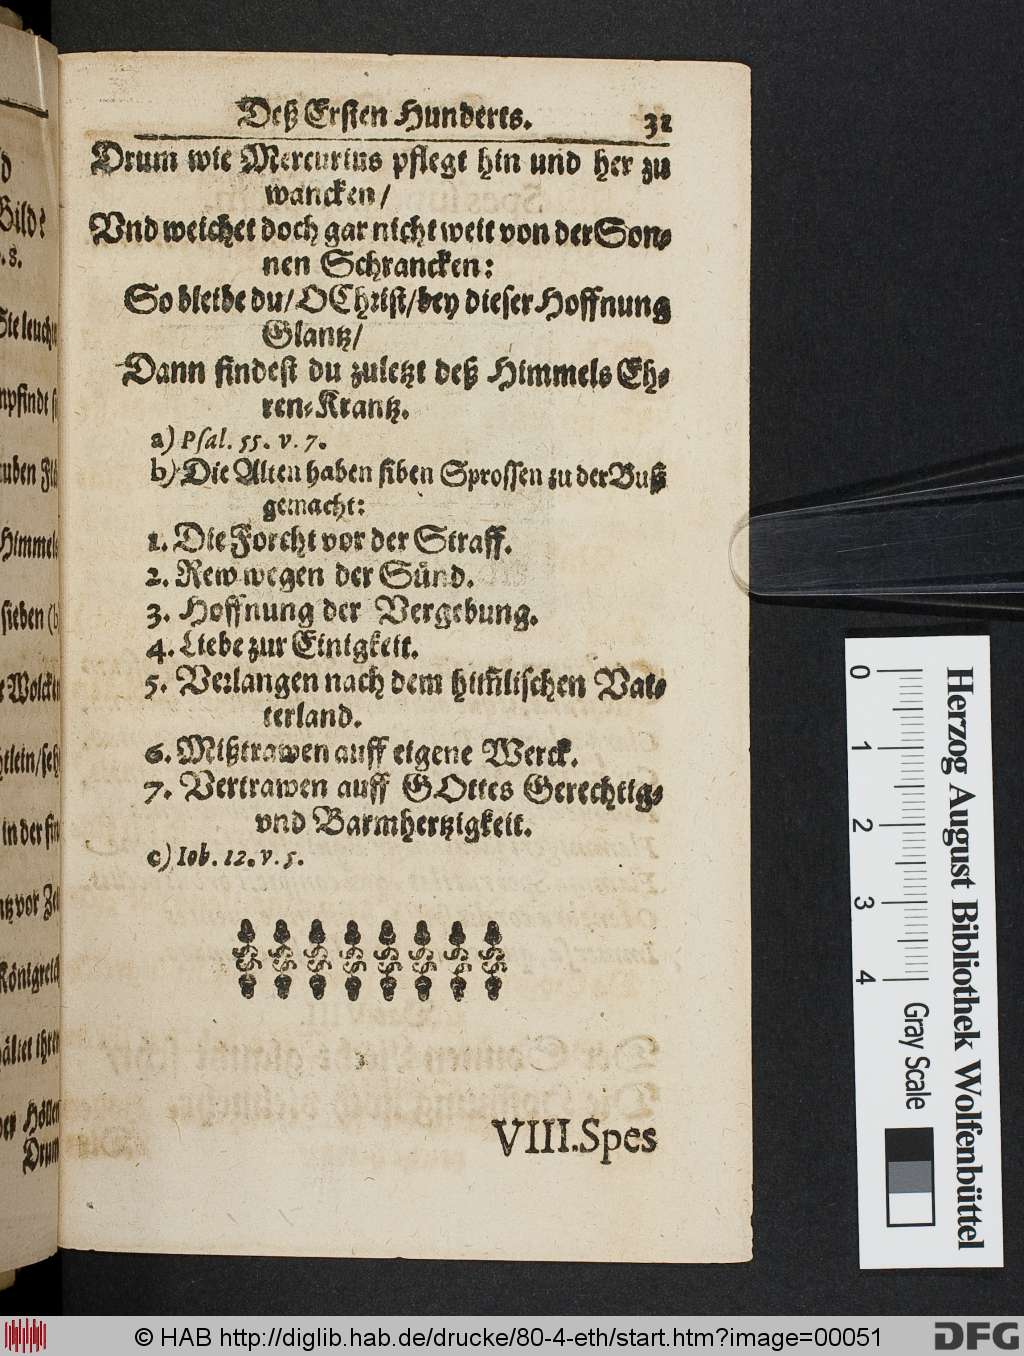 Deß Ersten Hunderts. 31
Drum wie Mercurius pflegt hin und her zu
wancken/
Vnd weichet doch gar nicht weit von der Son⸗
nen Schrancken:
So bleibe du/ O Christ/ bey dieser Hoffnung
Glantz/
Dann findest du zuletzt deß Himmels Eh⸗
ren⸗Krantz.
a) Psal. 55. v. 7.
b) Die Alten haben siben Sprossen zu der Buß
gemacht:
1. Die Forcht vor der Straff.
2. Rew wegen der Sünd.
3. Hoffnung der Vergebung.
4. Liebe zur Einigkeit.
5. Verlangen nach dem him̃lischen Vat⸗
terland.
6. Mißtrawen auff eigene Werck.
7. Vertrawen auff GOttes Gerechtig⸗
vnd Barmhertzigkeit.
c) Iob. 12. v. 5.
VIII. Spes
Bild?
Sie leuch
mpfindt
Himmels
sieben (b
Wolcken
in der
vor
Königreich
ihren
Höllen
Drum
0 1 2 3 4
Gray Scale
Herzog August Bibliothek Wolfenbüttel
© HAB http://diglib.hab.de/drucke/80-4-eth/start.htm?image=00051
DFG